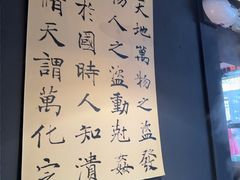 天地萬物之盜發
人之盜動尅姦
於國時人知潰
天謂萬化定